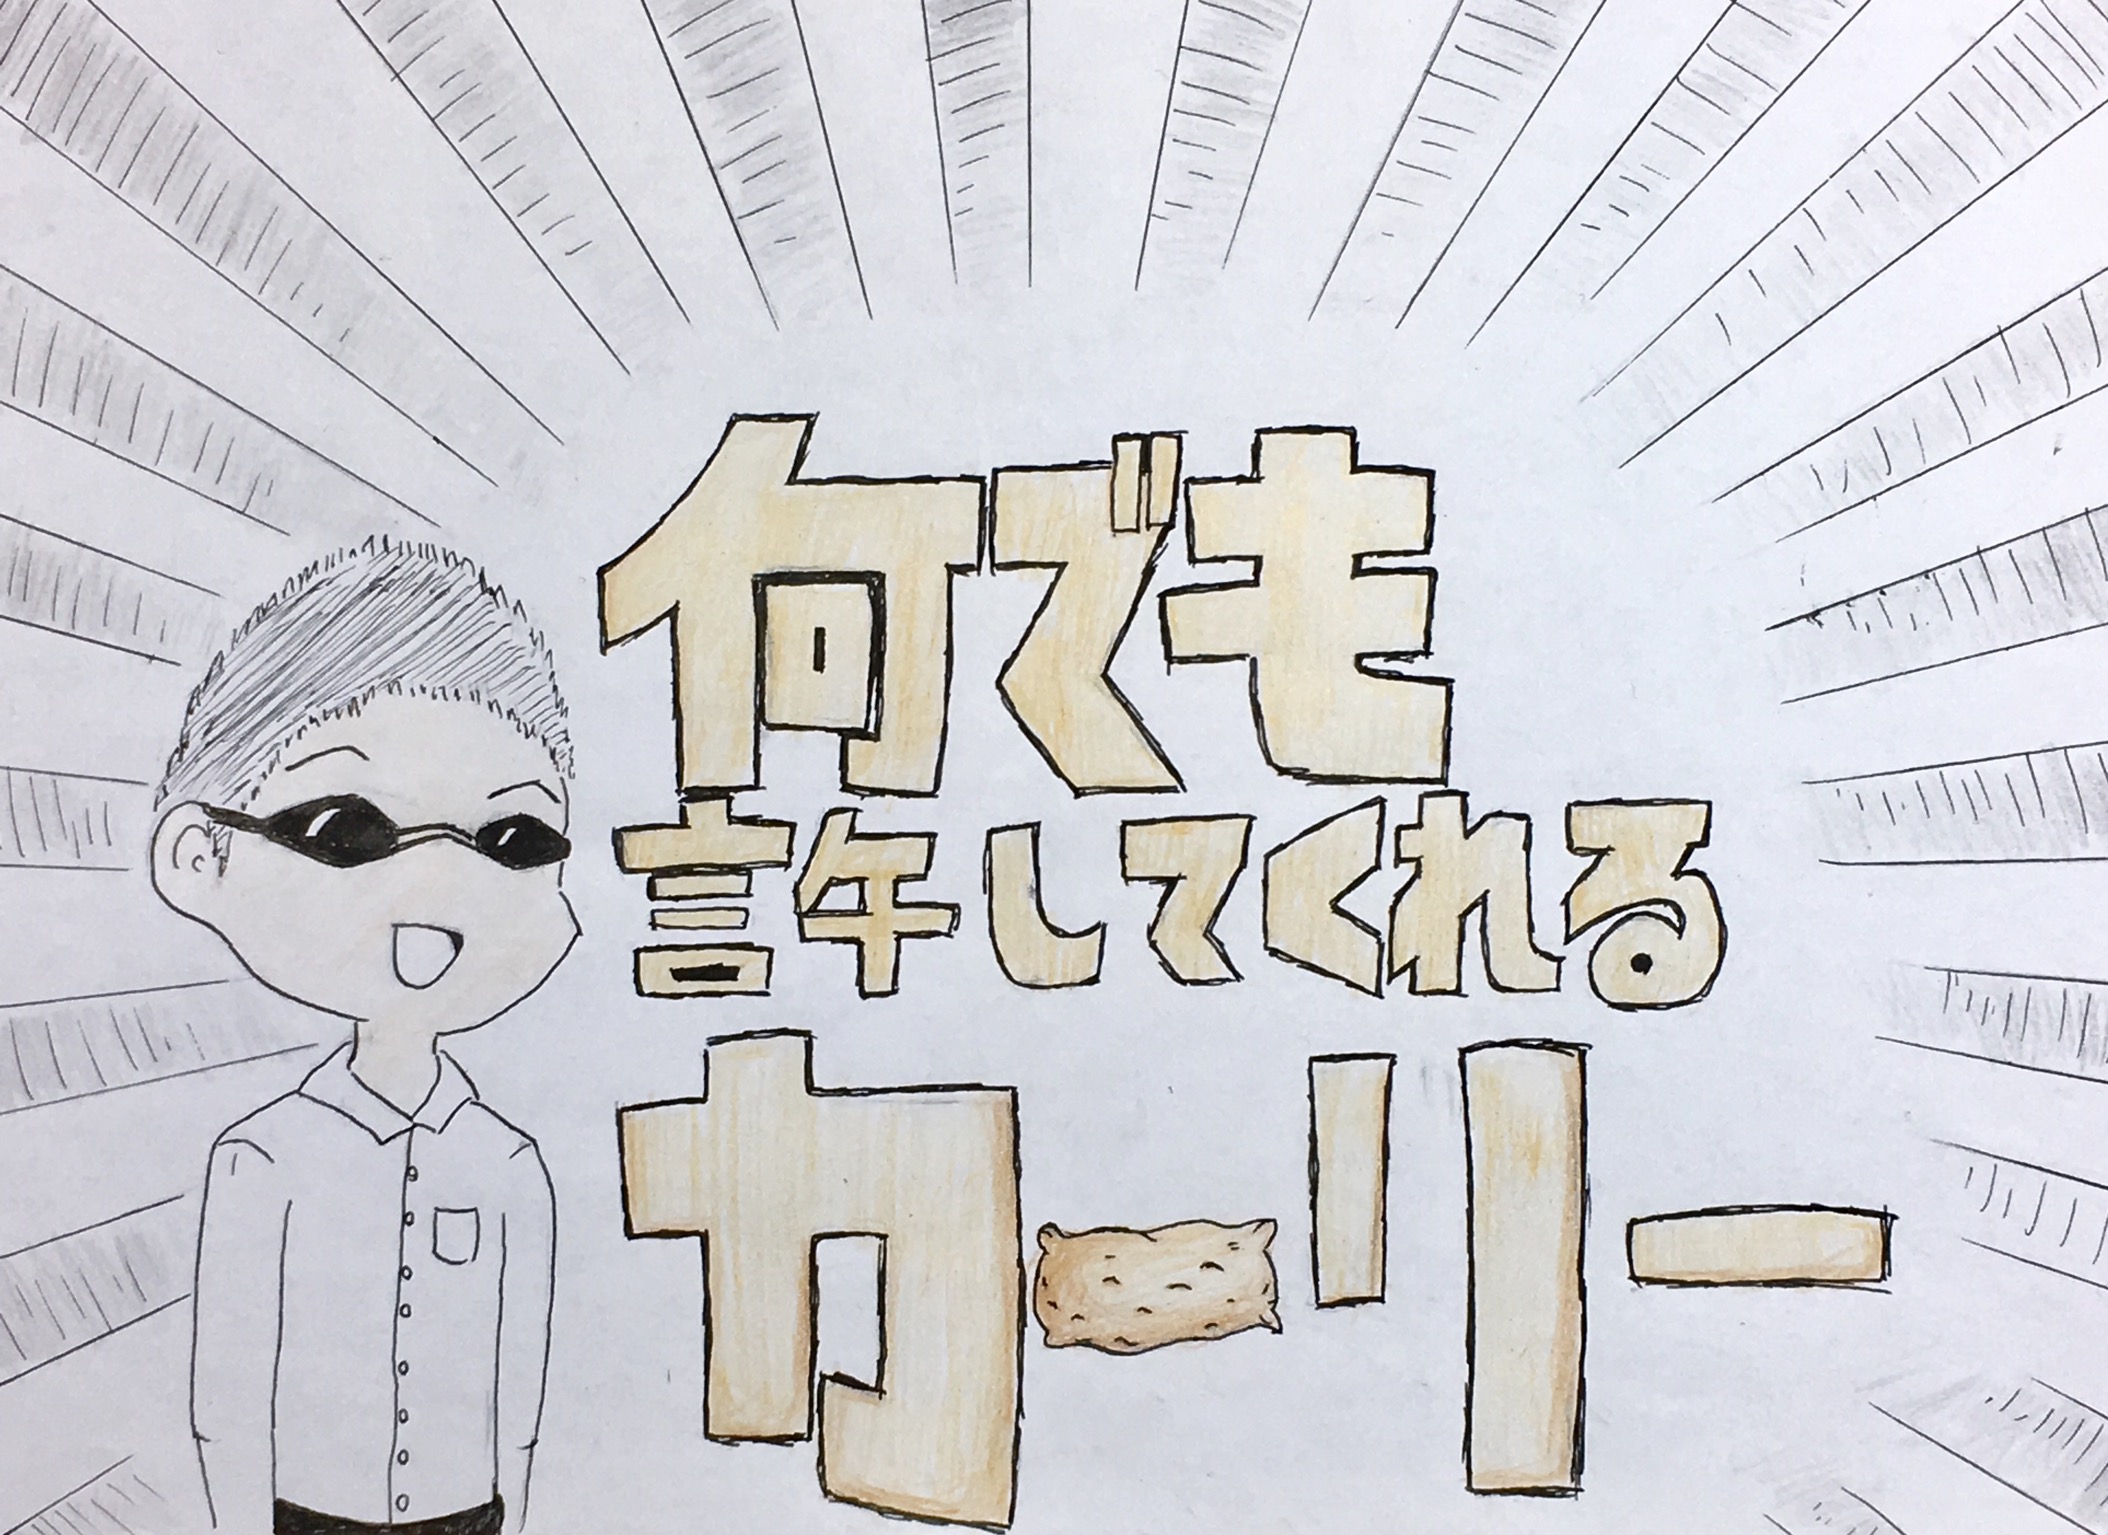 何でも
許してくれる
カーリー